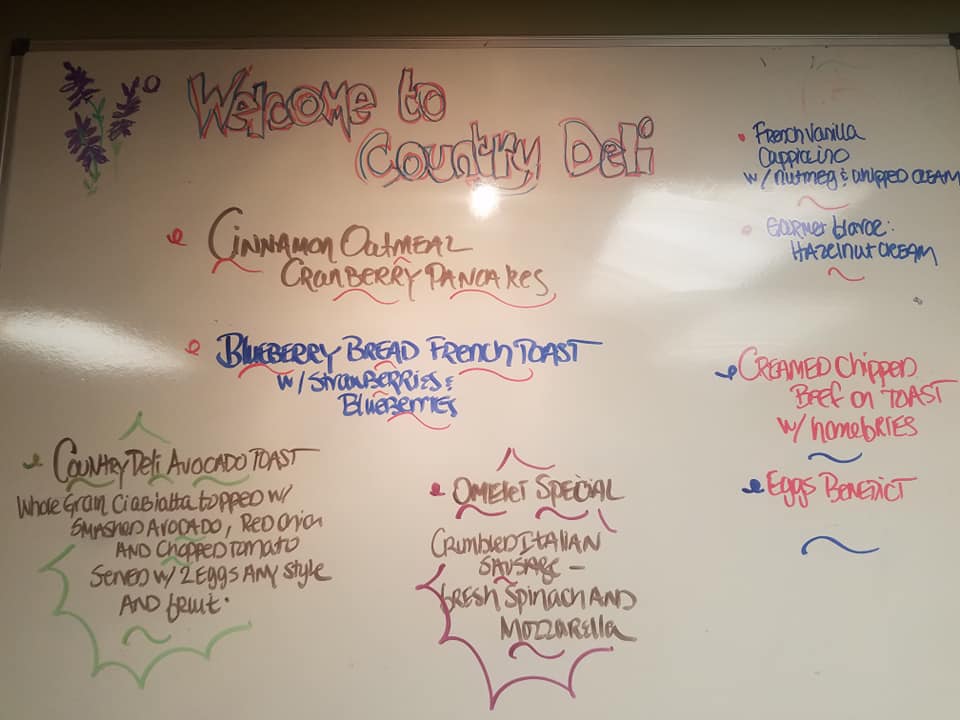 Welcome to
Country Deli
French Vanilla
Cappiccino
w/ nutmeg & whipped cream
Gourmet
Hazelnut cream
Cinnamon Oatmeal
Cranberry Pancakes
Blueberry Bread French Toast
w/ strawberries &
Blueberries
Creamed Chipped
Beef on Toast
w/ homefries
Eggs Benedict
Country Deli Avocado Toast
Whole Grain Ciabatta topped w/
Smashed Avocado, Red Onion
And Chopped Tomato
Served w/ 2 Eggs Any Style
And fruit.
Omelet Special
Crumbled Italian
Sausage -
fresh Spinach And
Mozzarella